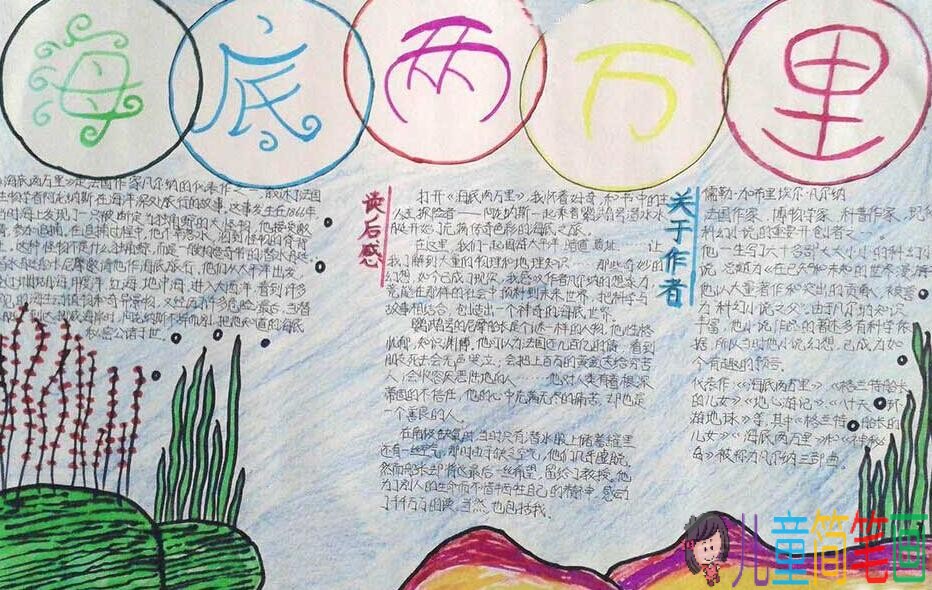 海底两万里
《海底两万里》是法国作家凡尔纳的代表作之一,叙述了法国
生物学者阿龙纳斯在海洋深处旅行的故事。这事发生在1866年
当时海上发现了一只被断定为独角鲸的大怪物,他接受
这种怪物不是什么独角鲸,而是一艘构造奇妙的潜水船。
尼摩邀请他作海底旅行,他们从太平洋出发,
红海,地中海,进入大西洋,看到许多
海生动植物和奇异景物,又经历了许多危险,最后,当潜
到达挪威海岸时,阿龙纳斯不辞而别,把他知道的海底
秘密公诸于世。
读后感
打开《海底两万里》,我怀着好奇,和书中的主
人公探险者——阿龙纳斯一起乘着鹦鹉号潜水
艇开始了充满传奇色彩的海底之旅。
在这里,我们一起周游太平洋 让
我们了解到大量的生物和地理知识 那些奇妙的
幻想,如今已成了现实,我感叹作者凡尔纳的想象力
竟能在那样的社会中预料到未来世界,把科学与
故事相结合,创造出一个神奇的海底世界。
鹦鹉号的尼摩船长是个谜一样的人物,他性格
知识渊博,他可以为法国还几百亿的债,看到
朋友死去会无声哭泣;会把上百万的黄金送给穷苦
人;会收容厌恶陆地的人……他对人类有着根深
蒂固的不信任,他的心中充满无尽的痛苦,却也是
一个善良的人。
在南极缺氧时,当时只有潜水服上储蓄罐里
还有一丝空气,那时由于缺乏空气,他们几乎虚脱,
然而船长却将这最后一丝希望,留给了教授。他
为了别人的生命而不惜牺牲自己的精神,感动
了千千万万的读 当然,也包括我。
关于作者
儒勒·加布里埃尔·凡尔纳
法国作家、博物学家,科普作家,现
科幻小说的重要开创者之一。
他一生写了六十多 大大小小的科幻小
说,总题为《在已知和未知的世界漫游》
他以大量著作和突出的贡献,被誉
为“科幻小说之父”。由于凡尔纳知识
丰富,他小说作品的著述多有科学依
据,所以当时他小说幻想,已成为如
今有趣的预言。
代表作:《海底两万里》《格兰特船长
的儿女》《地心游记》《八十天环
游地球》等,其中《格兰特船长的
儿女》《海底两万里》和《神秘
岛》被称为凡尔纳三部曲。
儿童简笔画